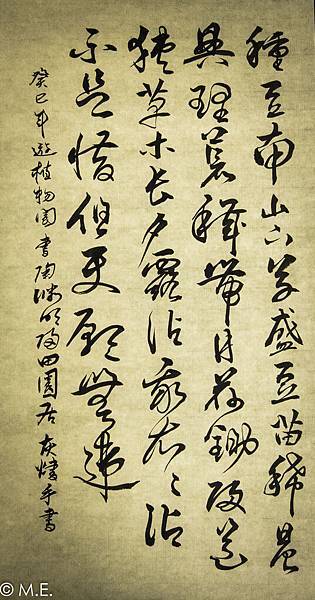 種豆南山下草盛豆苗稀晨
興理荒穢帶月荷鋤歸道
狹草木長夕露沾我衣〻沾
不足惜但使願無違
癸巳年遊植物園書陶淵明歸田園居 手書
© M.E.